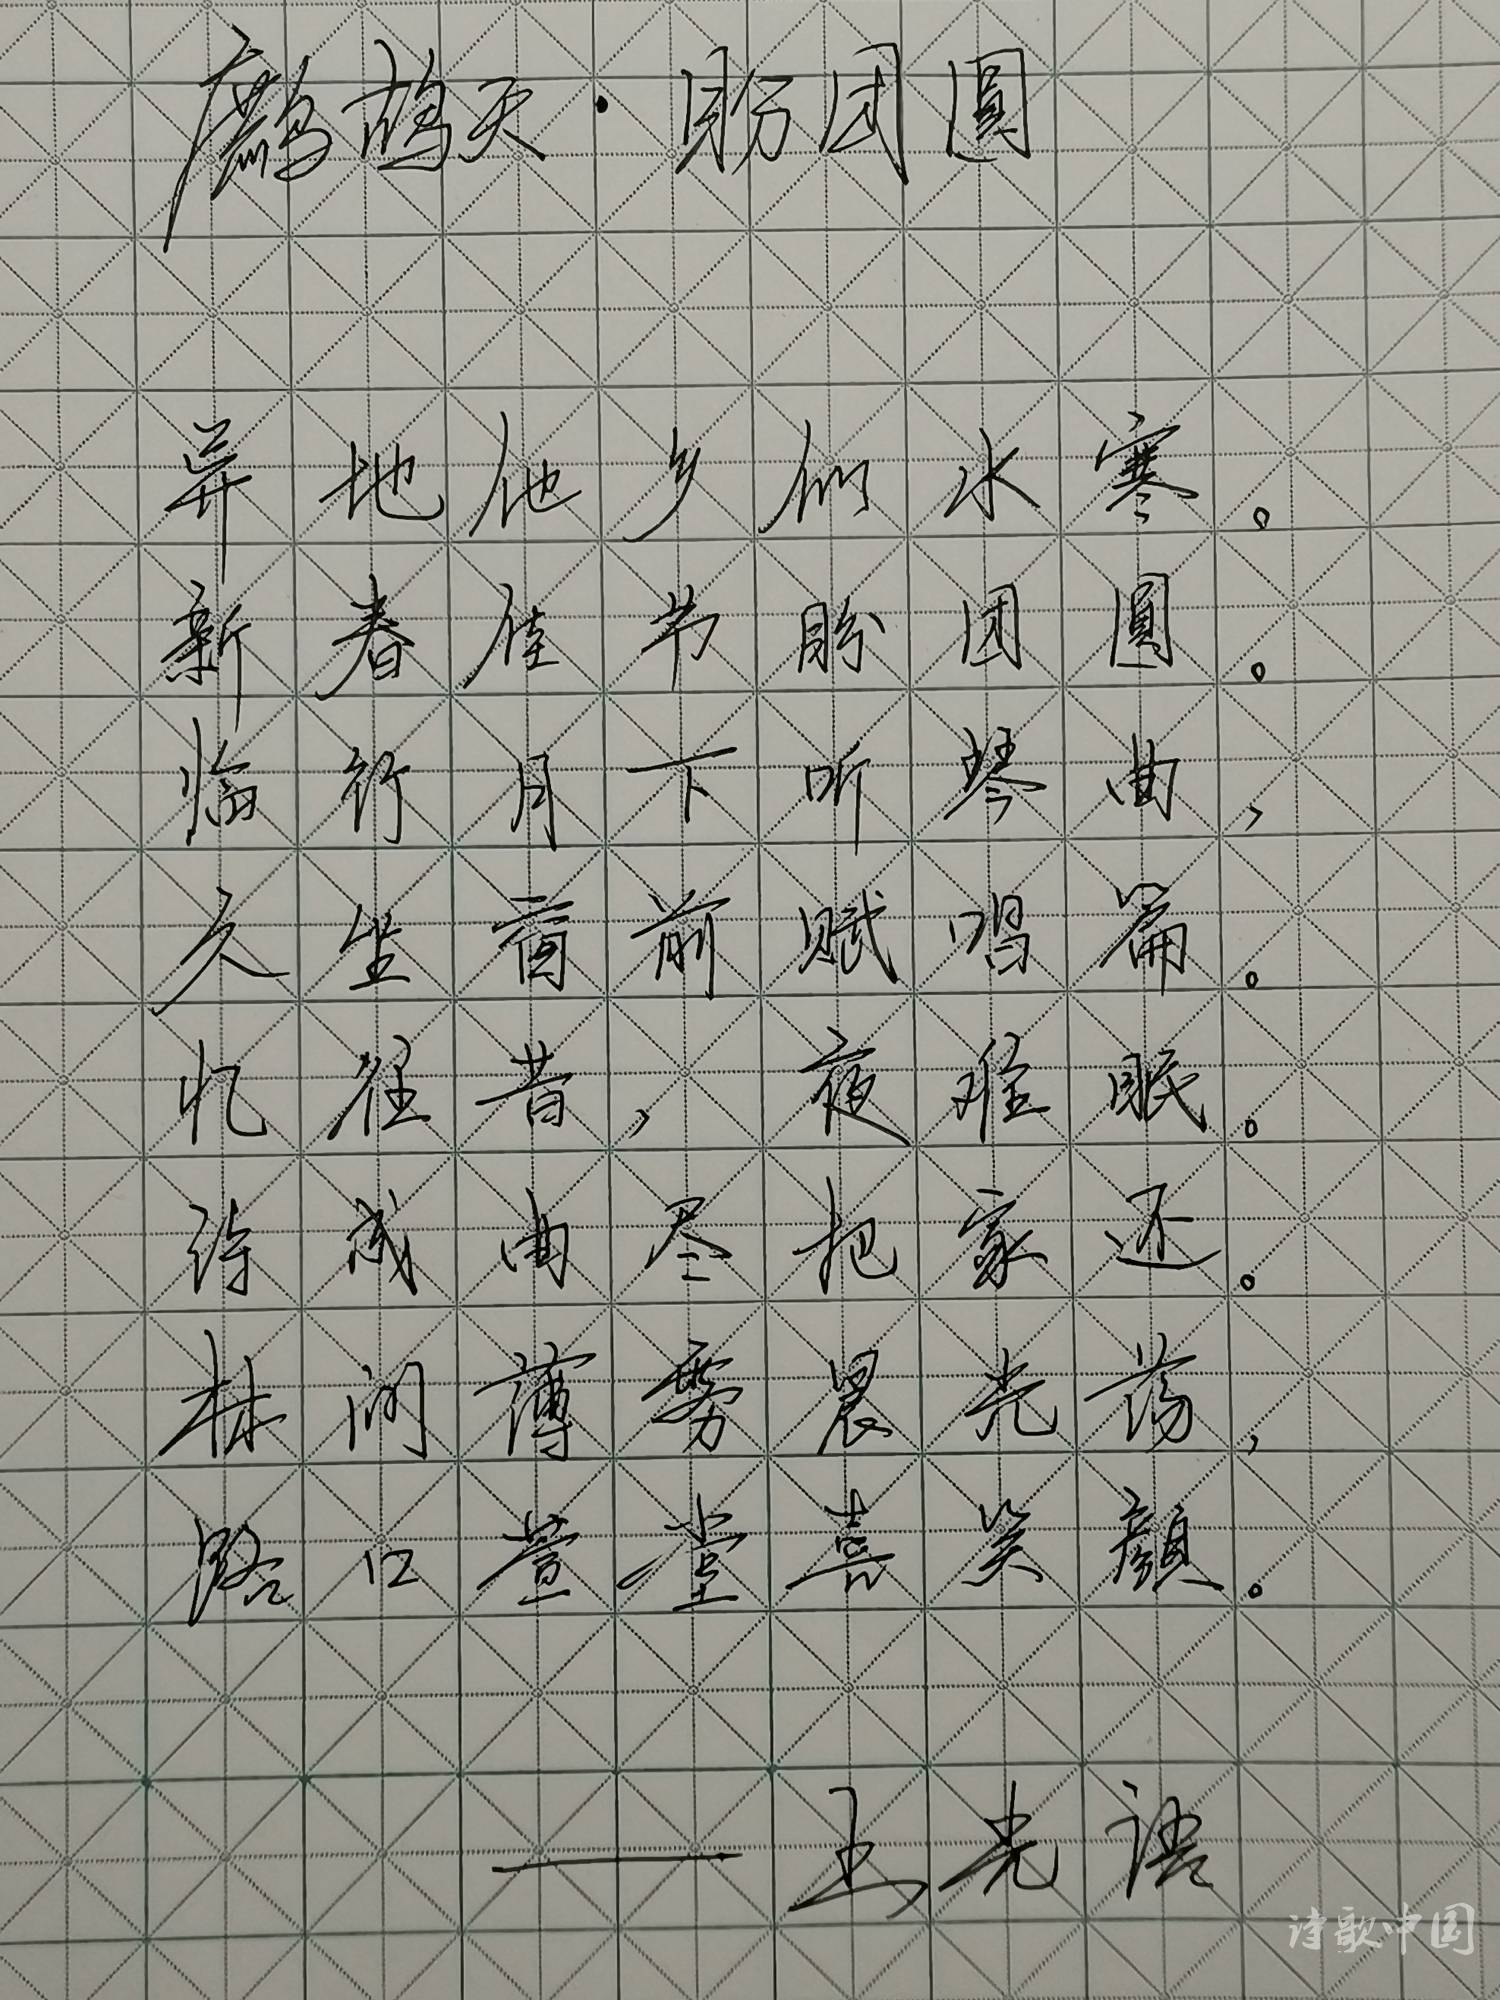 鹧鸪天·盼团圓
异地他乡似水寒。
新春佳节盼团圓。
临行月下听琴曲，
久坐窗前赋唱篇。
忆往昔，夜难眠。
诗成曲尽把家还。
林间薄雾晨光荡，
路口萱堂喜笑顔。
——王光语
诗歌中国